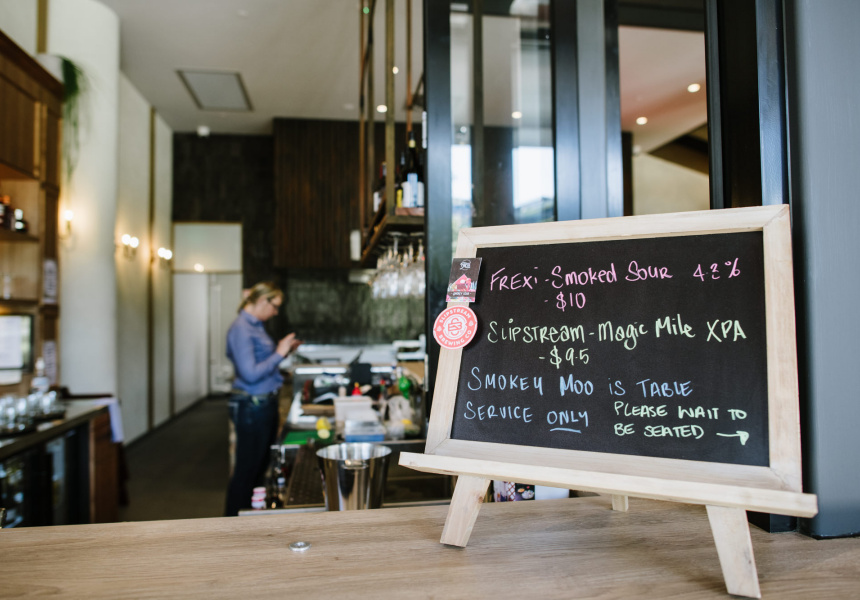 FREXi - SMOKED SOUR 4.2%
- $10
SLIPSTREAM - MAGIC MILE XPA
- $9.5
SMOKEY MOO IS TABLE
SERVICE ONLY
PLEASE WAIT TO
BE SEATED →
SLIPSTREAM
BREWING CO